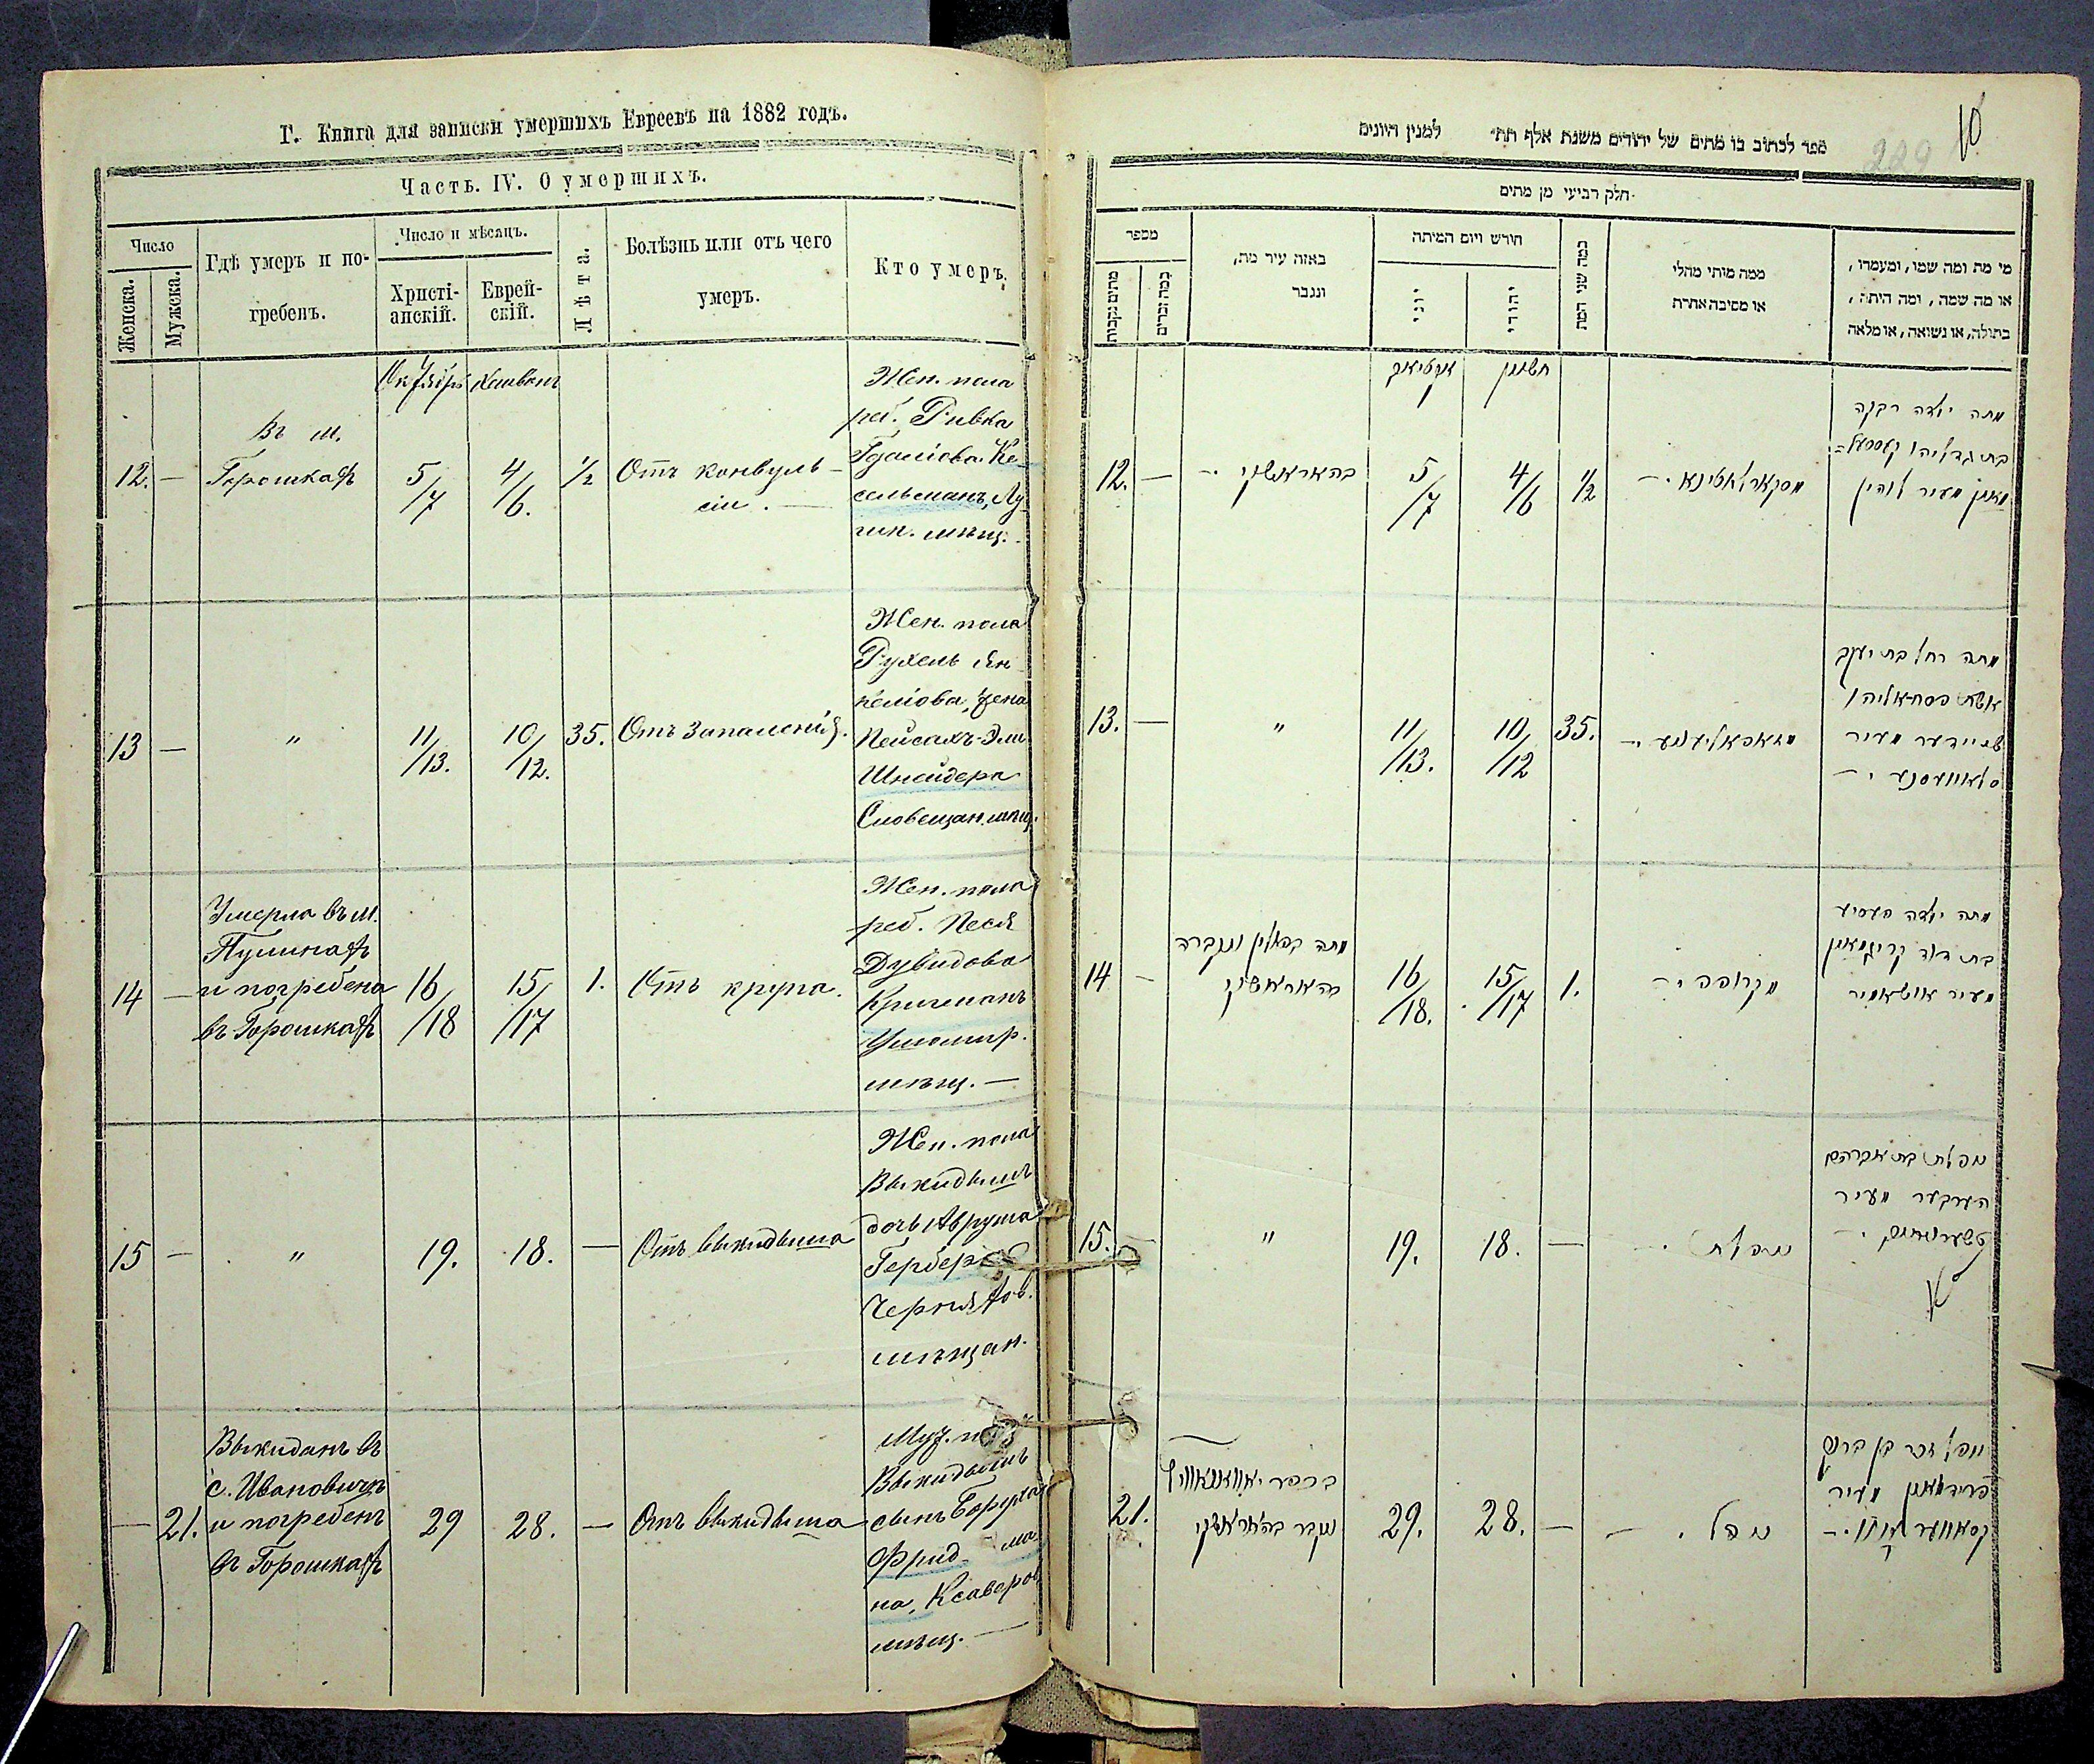 Г. Книга для записки умершихъ Евреевъ на 1882 годъ.
Часть. IV. О умершихъ.
Число
Женска.
Мужска.
Гдѣ умеръ и по-
гребенъ.
Число и мѣсяцъ.
Христі-
анскій.
Еврей-
скій.
Лѣта.
Болѣзнь или отъ чего
умеръ.
Кто умеръ.
Октябрь Хешвонъ
12. —
Въ м.
Горошкахъ
5/7
4/6.
½
Отъ конвуль-
сіи. —
Жен. пола
реб. Ривка
Гдаліова Ке-
сельманъ, Лу-
гин. мѣщ.
13 —
"
11/13.
10/12.
35.
Отъ Запаленія.
Жен. пола
Рухель Ян-
келіова, жена
Пейсахъ-Эли
Шнайдера
Словещан. мѣщ.
14 —
Умерла въ м.
Пулинахъ
и погребена
въ Горошкахъ
16/18
15/17
1.
Отъ крупа.
Жен. пола
реб. Песя
Дувидова
Кричманъ
Ушомир.
мѣщ. —
15 —
"
19.
18.
—
Отъ выкидыша
Жен. пола
Выкидышъ
дочь Аврума
Гербера
Черняхов.
мѣщан.
— 21.
Выкиданъ въ
с. Ивановичъ
и погребенъ
въ Горошкахъ
29
28.
—
Отъ выкидыша
Муж.
Выкидышъ
сынъ Боруха
Фрид- ма
на, Ксаверов
мѣщ. —
10
229
ספר לכתוב בו מתים של יהודים משנת אלף תת״ למנין היונים
חלק רביעי מן מתים
מספר
באזה עיר מת,
ונגבר
חודש ויום המיתה
יוני
יהודי
כמה שני המת
ממה מותי מחלי
או מסיבה אחרת
מי מת ומה שמו, ומעמדו,
או מה שמה, ומה היתה,
בתולה, או נשואה, או מלאה
אקטיאב חשוון
12. —
בהאראשקי —
5/7
4/6
½
מתה ילדה רבקה
בת גדליהו קעסעל=
מאן מעיר לוהין
13. —
"
11/13.
10/12
35.
מתה רחל בת יעקב
אשת פסח אליהו
שניידער מעיר
סלאוועסנע —
14 —
מתה בפאלין ונקברה
בהאראשקי
16/18.
15/17
1.
מקרופפ —
מתה ילדה פעסיע
בת דוד קריצמאן
מעיר אושאמיר
15. —
"
19.
18.
—
נופלת
נופלת בת אברהם
הערבער מעיר
21.
בכפר יאוואנאוויץ
נקבר בהאראשקי
29.
28.
—
נופל זכר בן ברוך
פרידמאן מעיר